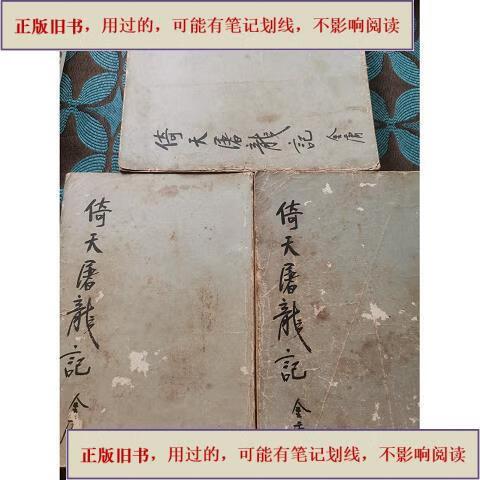 正版旧书，用过的，可能有笔记划线，不影响阅读
倚天屠龍記 金庸
倚天屠龍記 金庸
倚天屠龍記 金
正版旧书，用过的，可能有笔记划线，不影响阅读